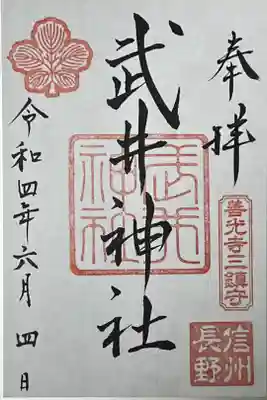 奉拝
善光寺三鎮守
信州
長野
武井神社
武井
神社
令和四年六月四日